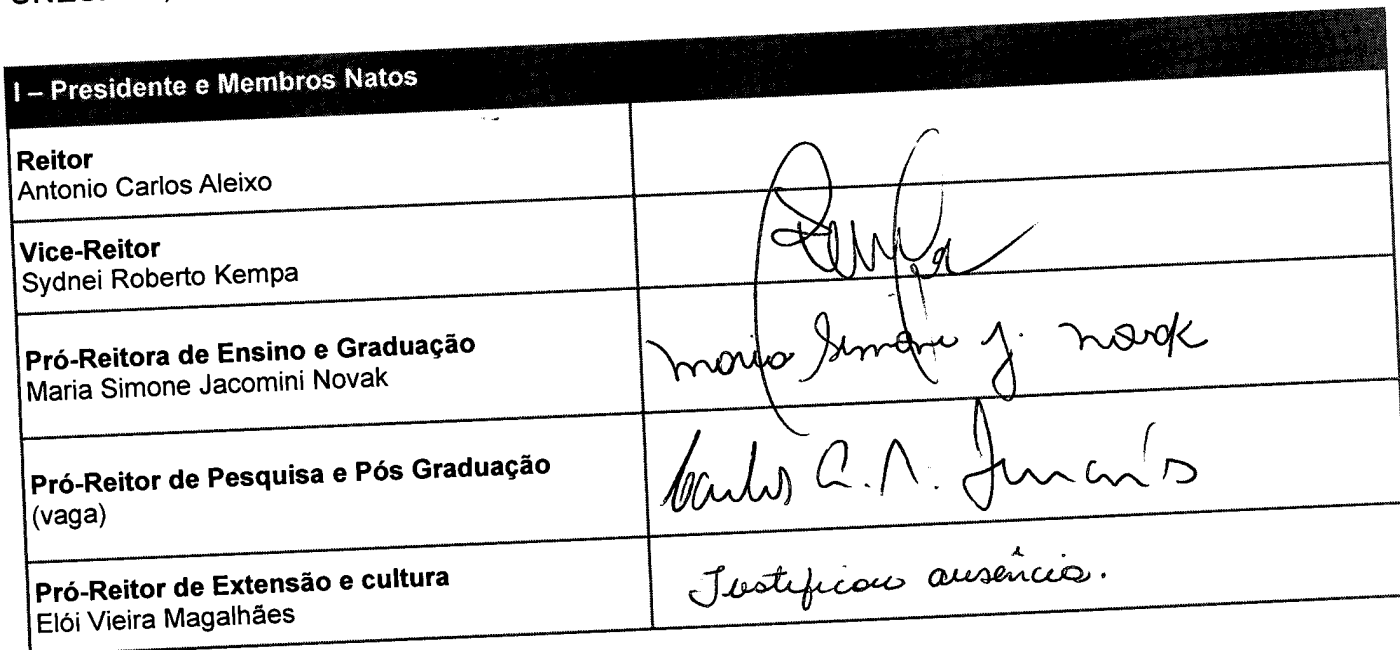 I – Presidente e Membros Natos
Reitor
Antonio Carlos Aleixo
Vice-Reitor
Sydnei Roberto Kempa
Pró-Reitora de Ensino e Graduação
Maria Simone Jacomini Novak
Maria Simone J. Novak
Pró-Reitor de Pesquisa e Pós Graduação
(vaga)
Carlos A. N.
Pró-Reitor de Extensão e cultura
Elói Vieira Magalhães
Justificou ausência.